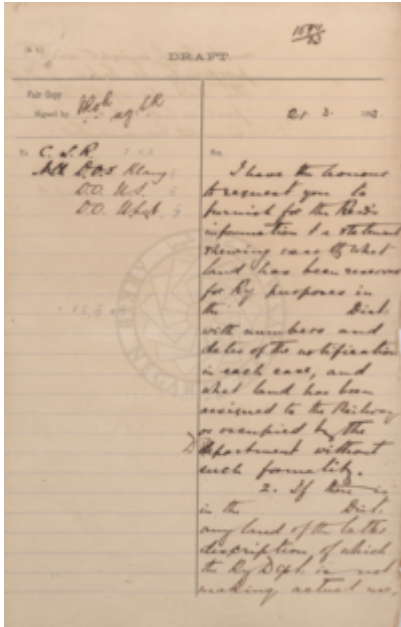 1584/93
DRAFT.
Fair Copy
Signed by
21 3 189
To C. S. R.
All D.O.s Klang
D.O. U.S.
D.O.
Sir,
I have the honour
to request you to
furnish for the Res's
information a statement
shewing
land has been reserved
for Ry purposes in
the Dist.
with numbers and
dates of the notification
in each case, and
what land has been
assigned to the Railway
or occupied by the
Department without
such formality.
2. If there is
in the Dist.
any land of the latter
description, of which
the Ry Dept. is not
making actual use,